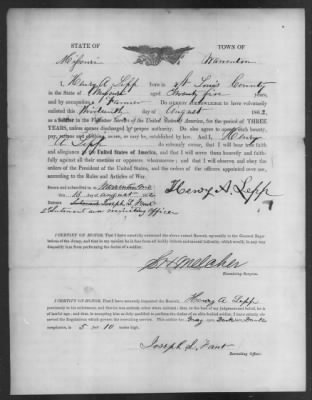 STATE OF TOWN OF
Missouri Warrenton
I, Henry A Lepp born in St Louis County
in the State of Missouri aged Twenty five years,
and by occupation a Farmer Do HEREBY ACKNOWLEDGE to have volunteered
enlisted this Thirteenth day of August 1862,
as a Soldier in the Volunteer Service of the United States of America, for the period of THREE
YEARS, unless sooner discharged by proper authority: Do also agree to accept such bounty,
pay, rations, and clothing, as are, or may be, established by law. And I, Henry
A Lepp do solemnly swear, that I will bear true faith
and allegiance to the United States of America, and that I will serve them honestly and faith-
fully against all their enemies or opposers whomsoever; and that I will observe and obey the
orders of the President of the United States, and the orders of the officers appointed over me,
according to the Rules and Articles of War.
Sworn and subscribed to, at Warrenton Mo
this 13 day of August 1862
Before Joseph L. Fant
2d Lieutenant and recruiting officer
Henry A. Lepp
I CERTIFY, ON HONOR, That I have carefully examined the above named Recruit, agreeably to the General Regu-
lations of the Army, and that in my opinion he is free from all bodily defects and mental infirmity, which would, in any way
disqualify him from performing the duties of a soldier.
Melcher
Examining Surgeon.
I CERTIFY, ON HONOR, That I have minutely inspected the Recruit, Henry A. Lepp
previously to his enlistment, and that he was entirely sober when enlisted; that, to the best of my judgment and belief, he is
of lawful age; and that, in accepting him as duly qualified to perform the duties of an able-bodied soldier, I have strictly ob-
served the Regulations which govern the recruiting service. This soldier has Gray eyes, Dark hair, Dark
complexion, is 5 feet 10 inches high.
Joseph L. Fant
Recruiting Officer.